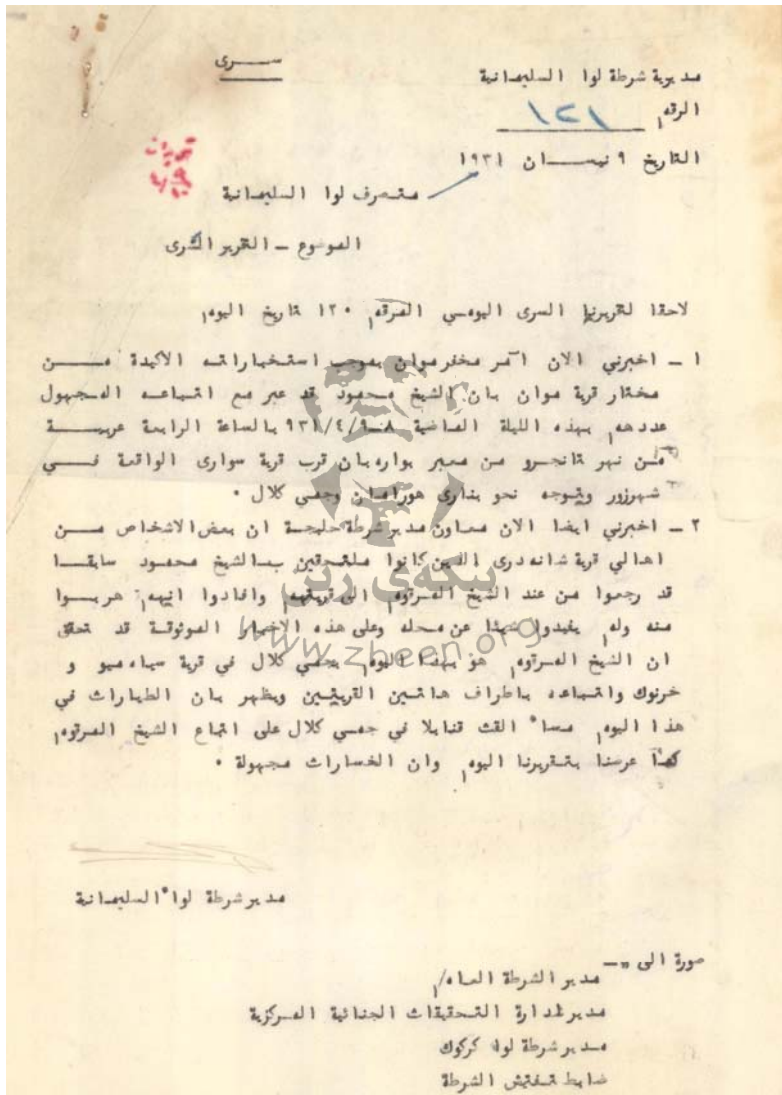 سرى
مديرية شرطة لوا السليمانية
الرقم ١٢١
التاريخ ٩ نيسان ١٩٣١
متصرف لوا السليمانية
الموضوع ــ التقرير السرى
لاحقا لتقريرنا السرى اليومي المرقم ١٢٠ تاريخ اليوم
١ ــ اخبرني الان آمر مخفر موان بموجب استخباراته الاكيدة من
مختار قرية موان بان الشيخ محمود قد عبر مع اتباعه المجهول
عددهم بهذه الليلة الماضية ٨ــ٩/٤/٩٣١ بالساعة الرابعة عربية
من نهر تانجرو من معبر بواره بان قرب قرية سوارى الواقعة في
شهرزور ويتوجه نحو بنارى هورامان وجمي كلال ٠
٢ ــ اخبرني ايضا الان معاون مدير شرطة حلبجة ان بعض الاشخاص من
اهالي قرية شانه درى الذين كانوا ملتحقين بالشيخ محمود سابقا
قد رجعوا من عند الشيخ المرقوم الى قريتهم وافادوا انهم هربوا
منه ولم يفيدوا شيئا عن محله وعلى هذه الاخبار الموثوقة قد تحقق
ان الشيخ المرقوم هو بهذا اليوم بجمي كلال في قرية سياه ميو و
خرنوك واتباعه باطراف هاتين القريتين ويظهر بان الطيارات في
هذا اليوم مساء القت قنابلا في جمي كلال على اتباع الشيخ المرقوم
كما عرضنا بتقريرنا اليوم وان الخسارات مجهولة ٠
مدير شرطة لواء السليمانية
صورة الى ــ
مدير الشرطة العام
مدير ادارة التحقيقات الجنائية المركزية
مدير شرطة لواء كركوك
ضابط تفتيش الشرطة
بنكەى ژین
www.zheen.org